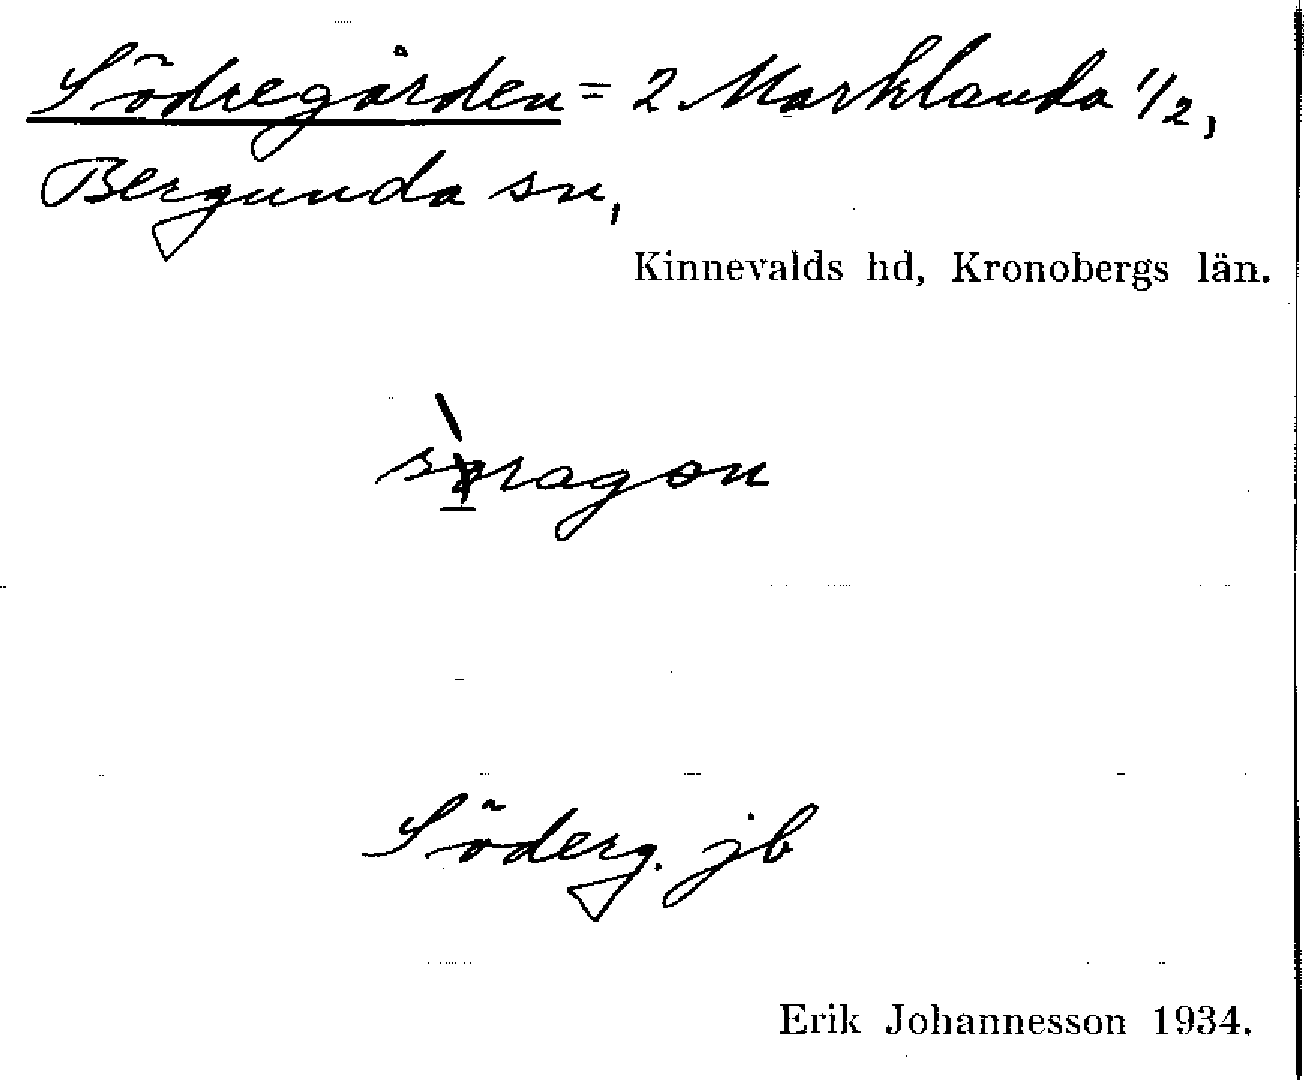 Södregården = 2 Marklanda 1/2,
Bergunda sn,
Kinnevalds hd, Kronobergs län.
Söderg. jb
Erik Johannesson 1934.